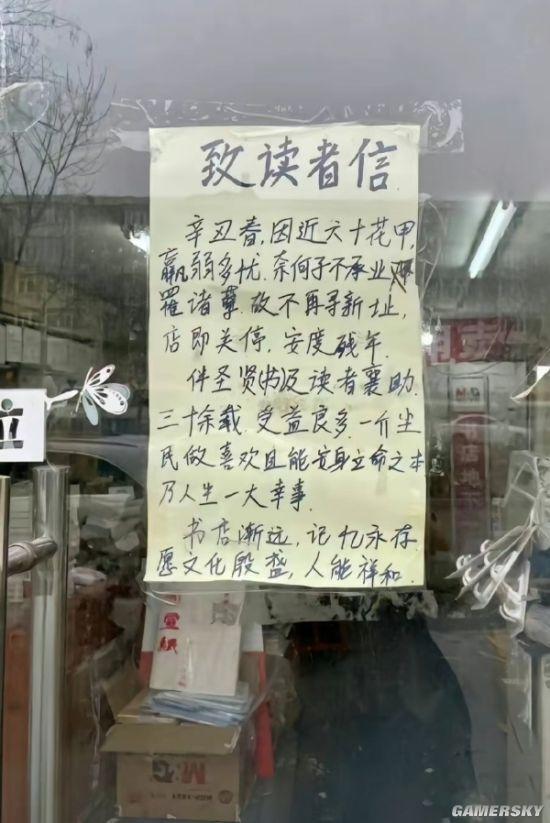 致读者信
辛丑春,因近六十花甲,
羸弱多忧.奈何子不承业
罹诸孽.故不再寻新址,
店即关停,安度残年.
伴圣贤(书)及读者襄助.
三十余载.受益良多.一介尘
民做喜欢且能安身立命之本
乃人生一大幸事.
书店渐远,记忆永存
愿文化殷盛,人能祥和
立
M&G
宣
紙
M&G
GAMERSKY